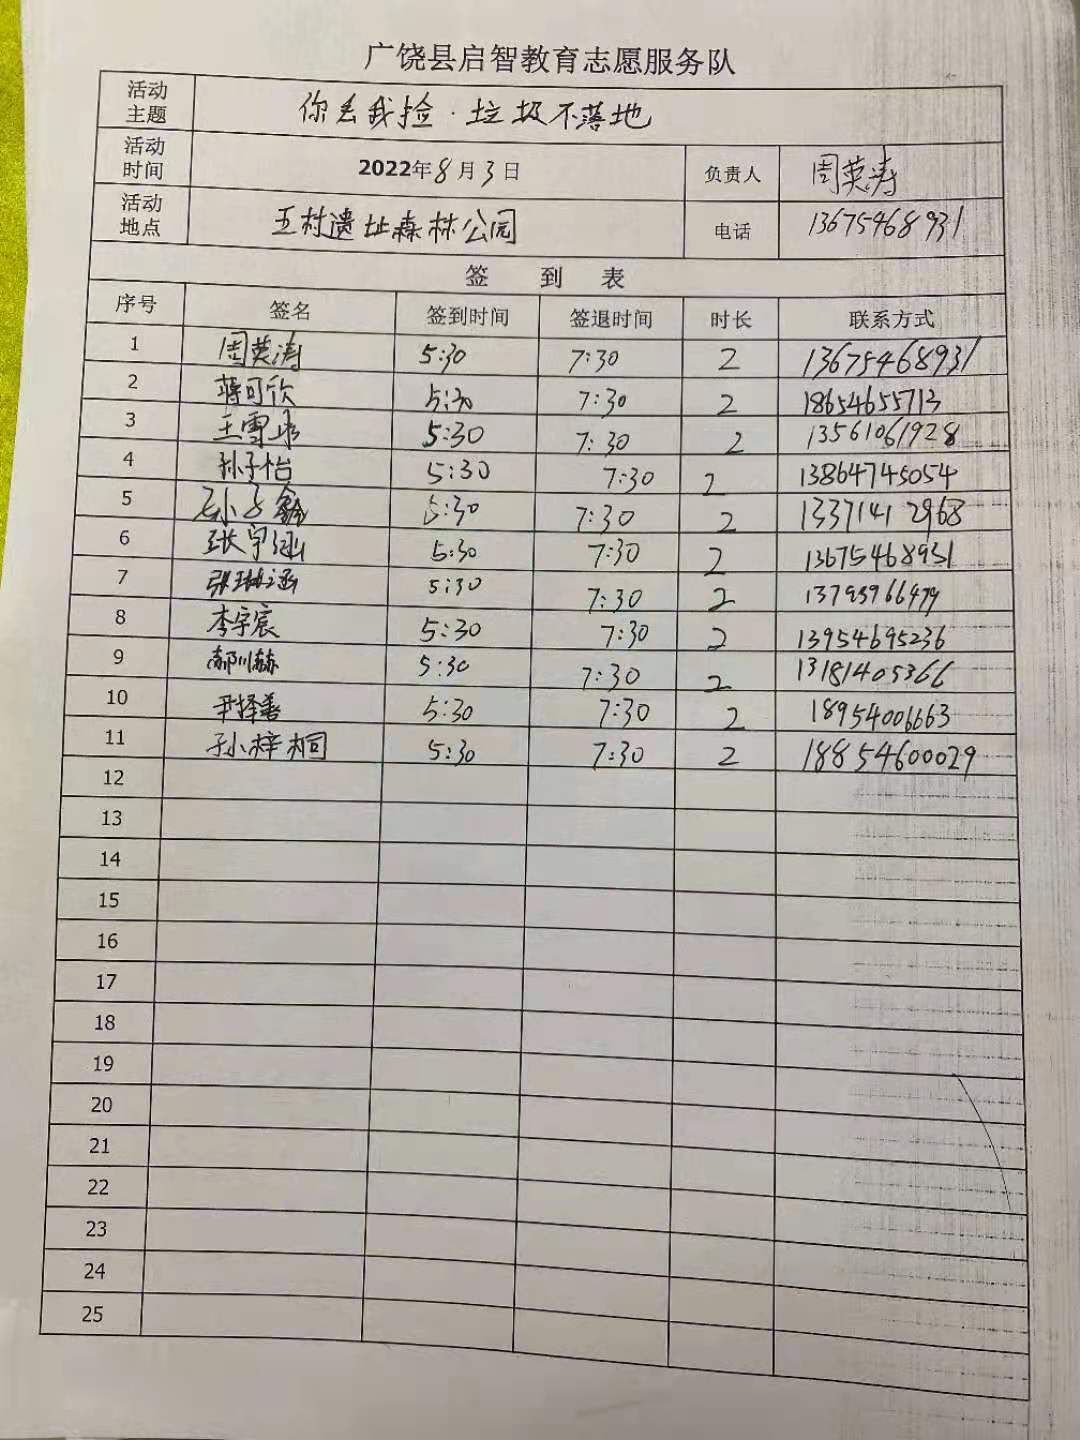 广饶县启智教育志愿服务队
活动主题 你丢我捡·垃圾不落地
活动时间 2022年8月3日 负责人 周英涛
活动地点 五村遗址森林公园 电话 13675468931
签 到 表
序号 签名 签到时间 签退时间 时长 联系方式
1 周英涛 5:30 7:30 2 13675468931
2 蒋可欣 5:30 7:30 2 18654655713
3 王雪 5:30 7:30 2 13561061928
4 孙子怡 5:30 7:30 2 13864745054
5 孙子鑫 5:30 7:30 2 13371412968
6 张宇涵 5:30 7:30 2 13675468931
7 张琳涵 5:30 7:30 2
8 李宇宸 5:30 7:30 2 13954695236
9 5:30 7:30 2 13181405366
10 尹择善 5:30 7:30 2 18954006663
11 孙梓桐 5:30 7:30 2 18854600029
12
13
14
15
16
17
18
19
20
21
22
23
24
25